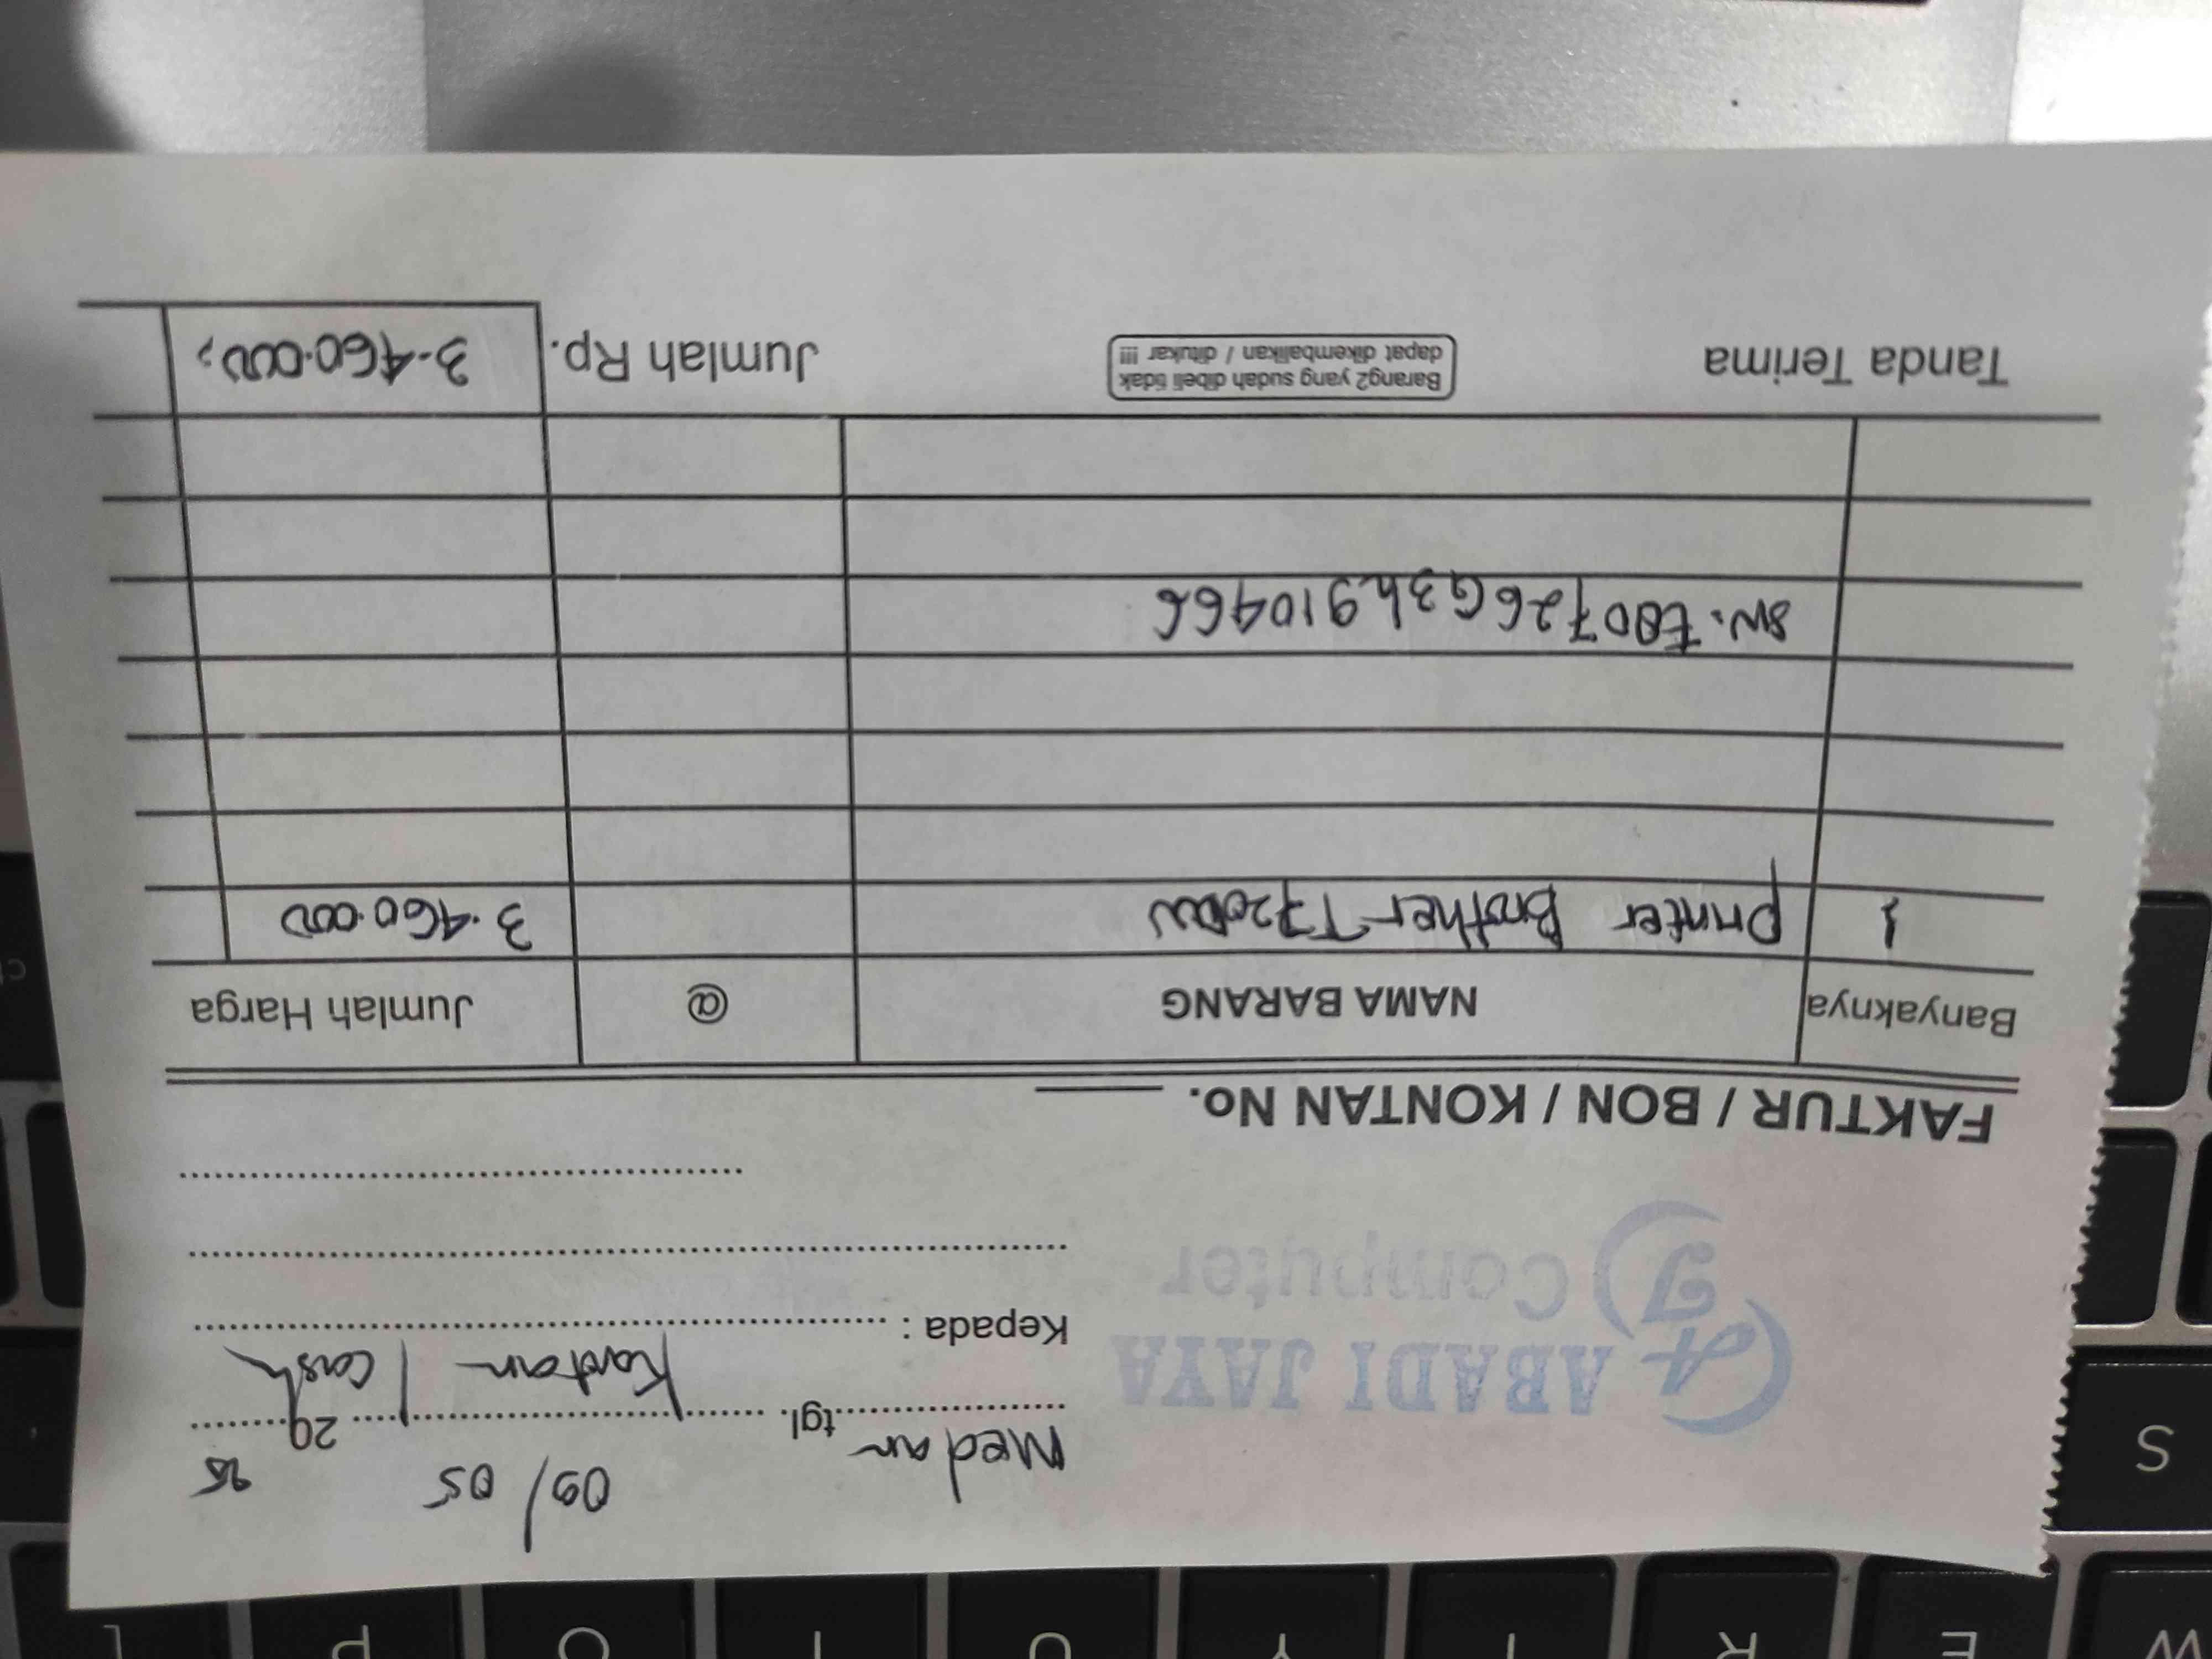 Medan tgl. 09/05 20 25
Kontan / Cash
Kepada :
AJ ABADI JAYA
Computer
FAKTUR / BON / KONTAN No.
Banyaknya NAMA BARANG @ Jumlah Harga
1 Printer Brother T720DW 3.460.000
SN. E80726G3H910466
Tanda Terima
Barang2 yang sudah dibeli tidak
dapat dikembalikan / ditukar !!!
Jumlah Rp. 3.460.000,
S
W E R T Y U I O P [